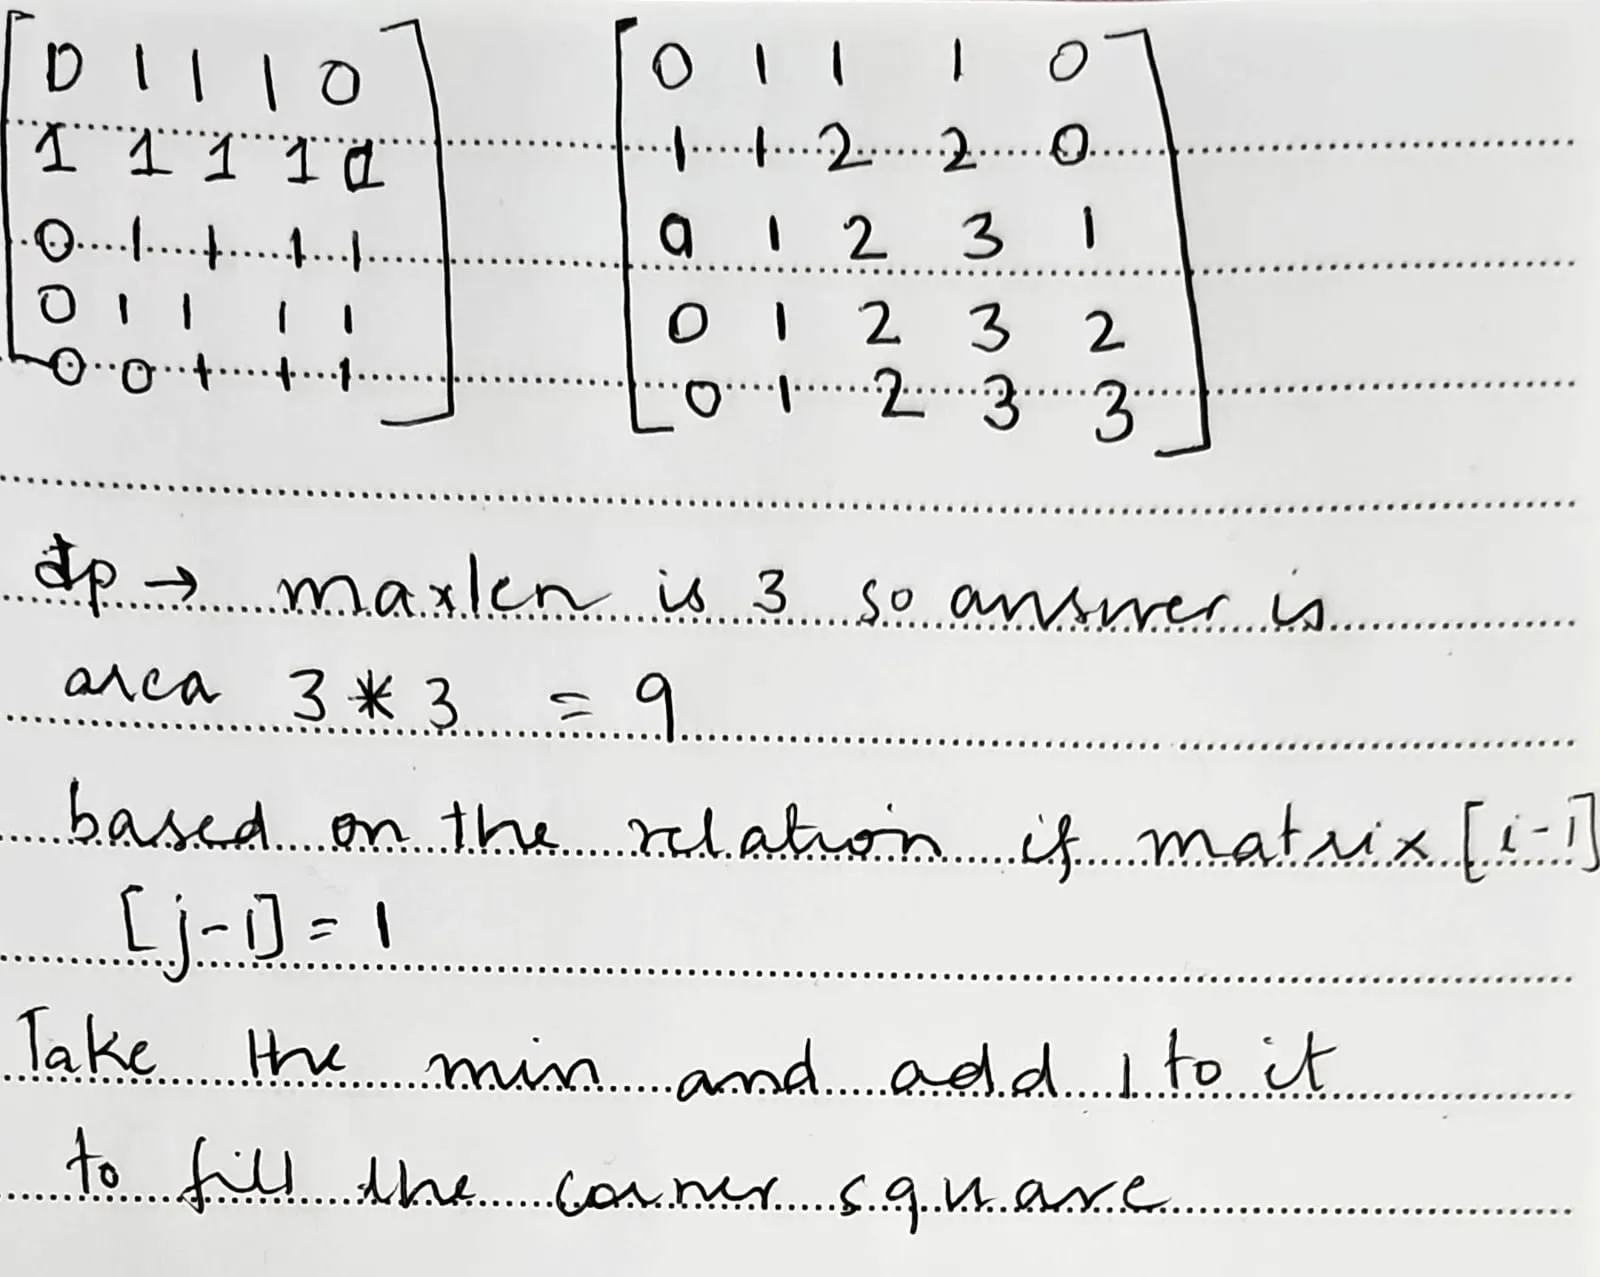 0 1 1 1 0    0 1 1 1 0
1 1 1 1    1 1 2 2 0
0 1 1 1 1    0 1 2 3 1
0 1 1 1 1    0 1 2 3 2
0 0 1 1 1    0 1 2 3 3
dp → maxlen is 3 so answer is
area 3 * 3 = 9
based on the relation if matrix [i-1]
[j-1] = 1
Take the min and add 1 to it
to fill the corner square